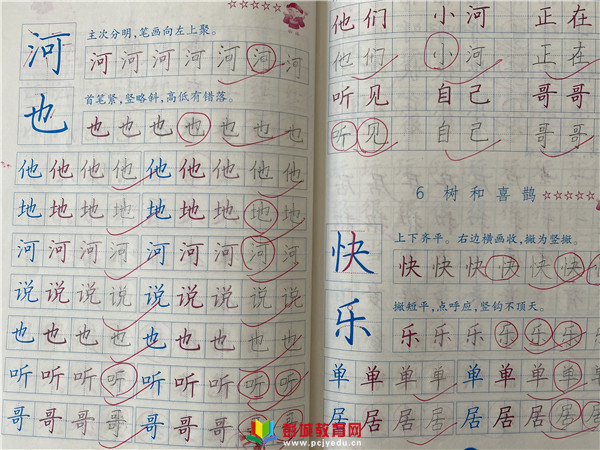 河
主次分明,笔画向左上聚。
河河河河河河河
也
首笔紧,竖略斜,高低有错落。
也也也也也也也
他他他他他他他他他
地地地地地地地地地
河河河河河河河河河
说说说说说说说说说
也也也也也也也也也
听听听听听听听听听
哥哥哥哥哥哥哥哥哥
他们 小河 正在
他们 小河 正在
听见 自己 哥哥
听见 自己 哥哥
6 树和喜鹊 ☆☆☆☆☆
快
上下齐平。右边横画收,撇为竖撇。
快快快快快快
乐
撇短平,点呼应,竖钩不顶天。
乐乐乐乐乐乐
单单单单单单单单
居居居居居居居居
彭城教育网
www.pcjyedu.com